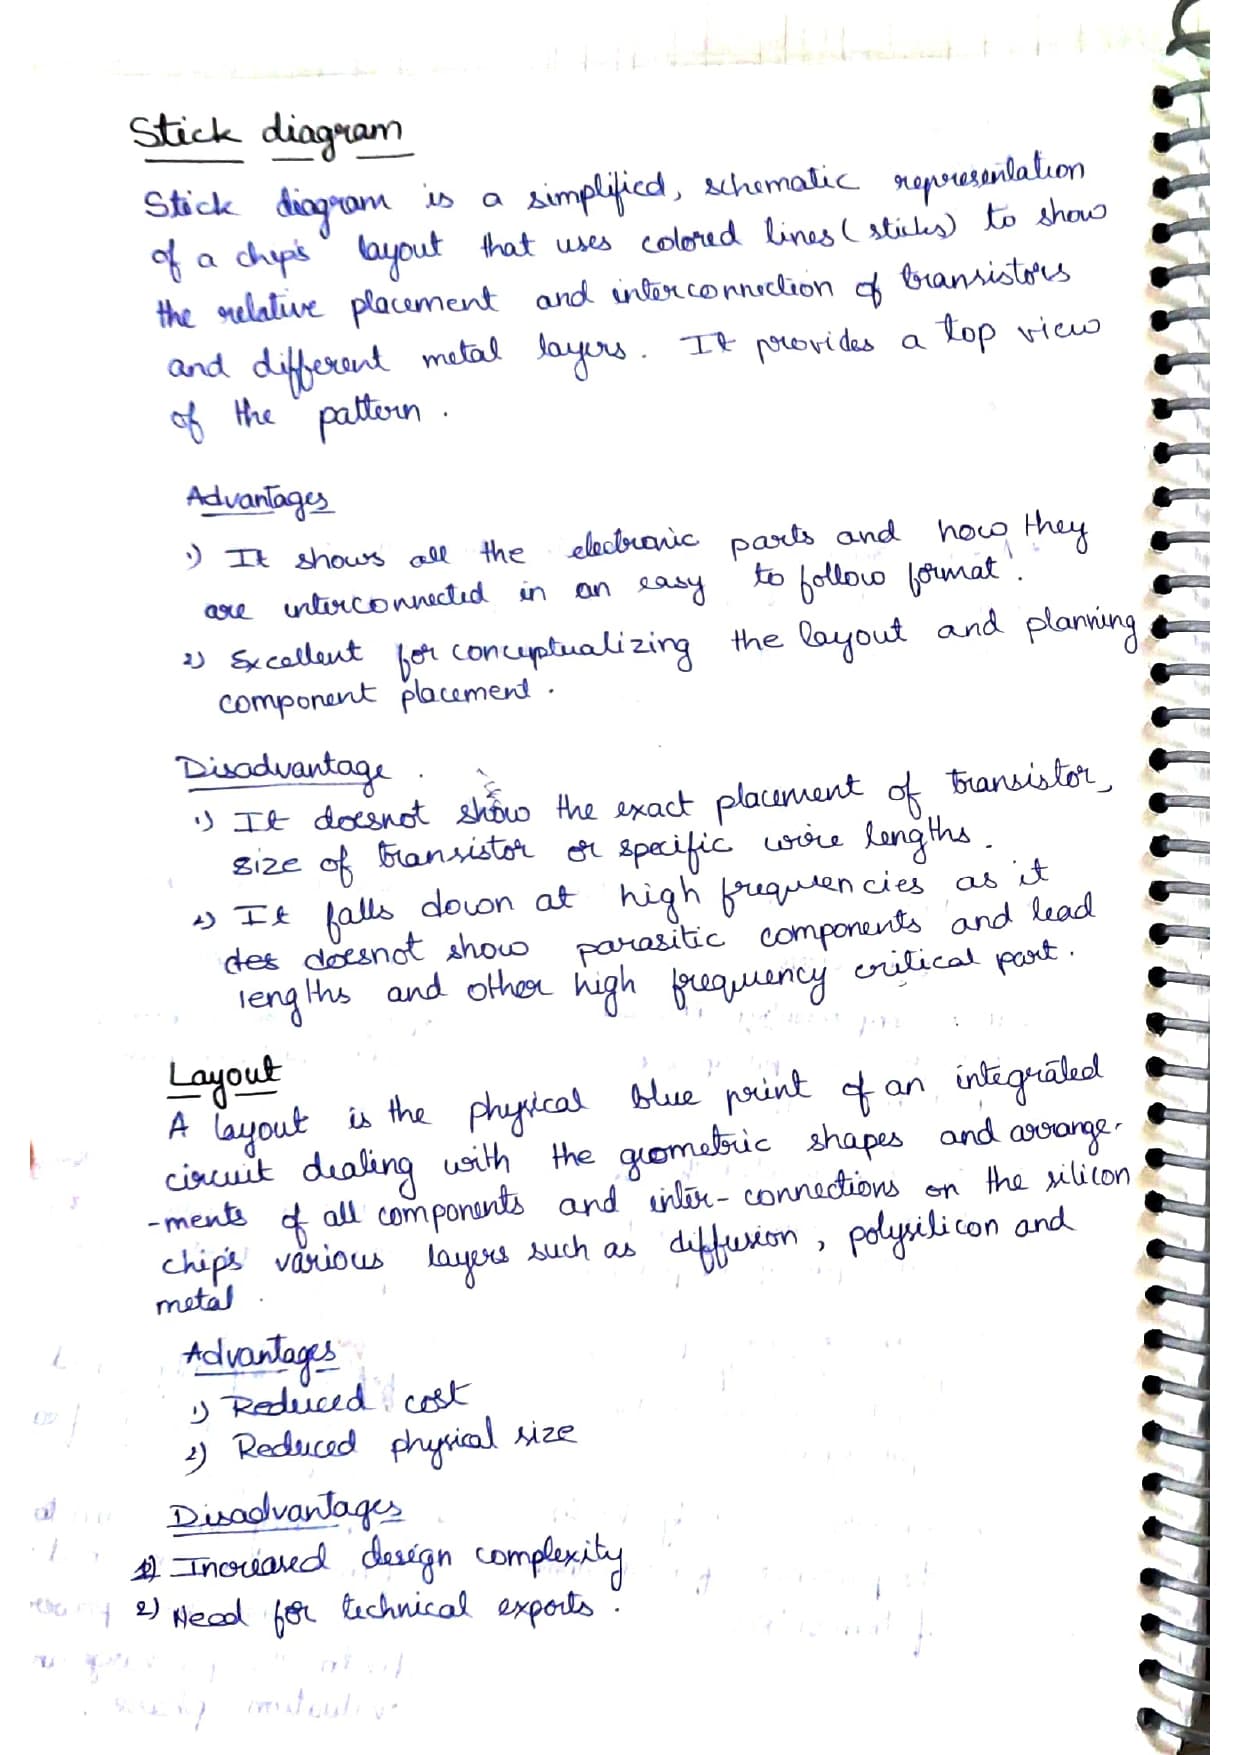 Stick diagram
Stick diagram is a simplified, schematic representation
of a chip's layout that uses colored lines (sticks) to show
the relative placement and interconnection of transistors
and different metal layers. It provides a top view
of the pattern.
Advantages
1) It shows all the electronic parts and how they
are interconnected in an easy to follow format.
2) Excellent for conceptualizing the layout and planning
component placement.
Disadvantage
1) It doesnot show the exact placement of transistor,
size of transistor or specific wire lengths.
2) It falls down at high frequencies as it
doesnot show parasitic components and lead
lengths and other high frequency critical part.
Layout
A layout is the physical blue print of an integrated
circuit dealing with the geometric shapes and arrange-
-ments of all components and inter-connections on the silicon
chip's various layers such as diffusion, polysilicon and
metal.
Advantages
1) Reduced cost
2) Reduced physical size
Disadvantages
1) Increased design complexity
2) Need for technical experts.